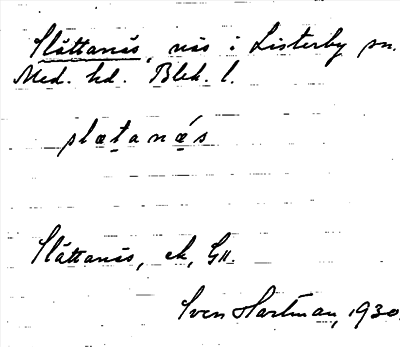 Slättanäs, näs i Listerby sn.
Med. hd. Blek. l.
slætanǽs
Slättanäs, ek, G11.
Sven Hartman, 1930.